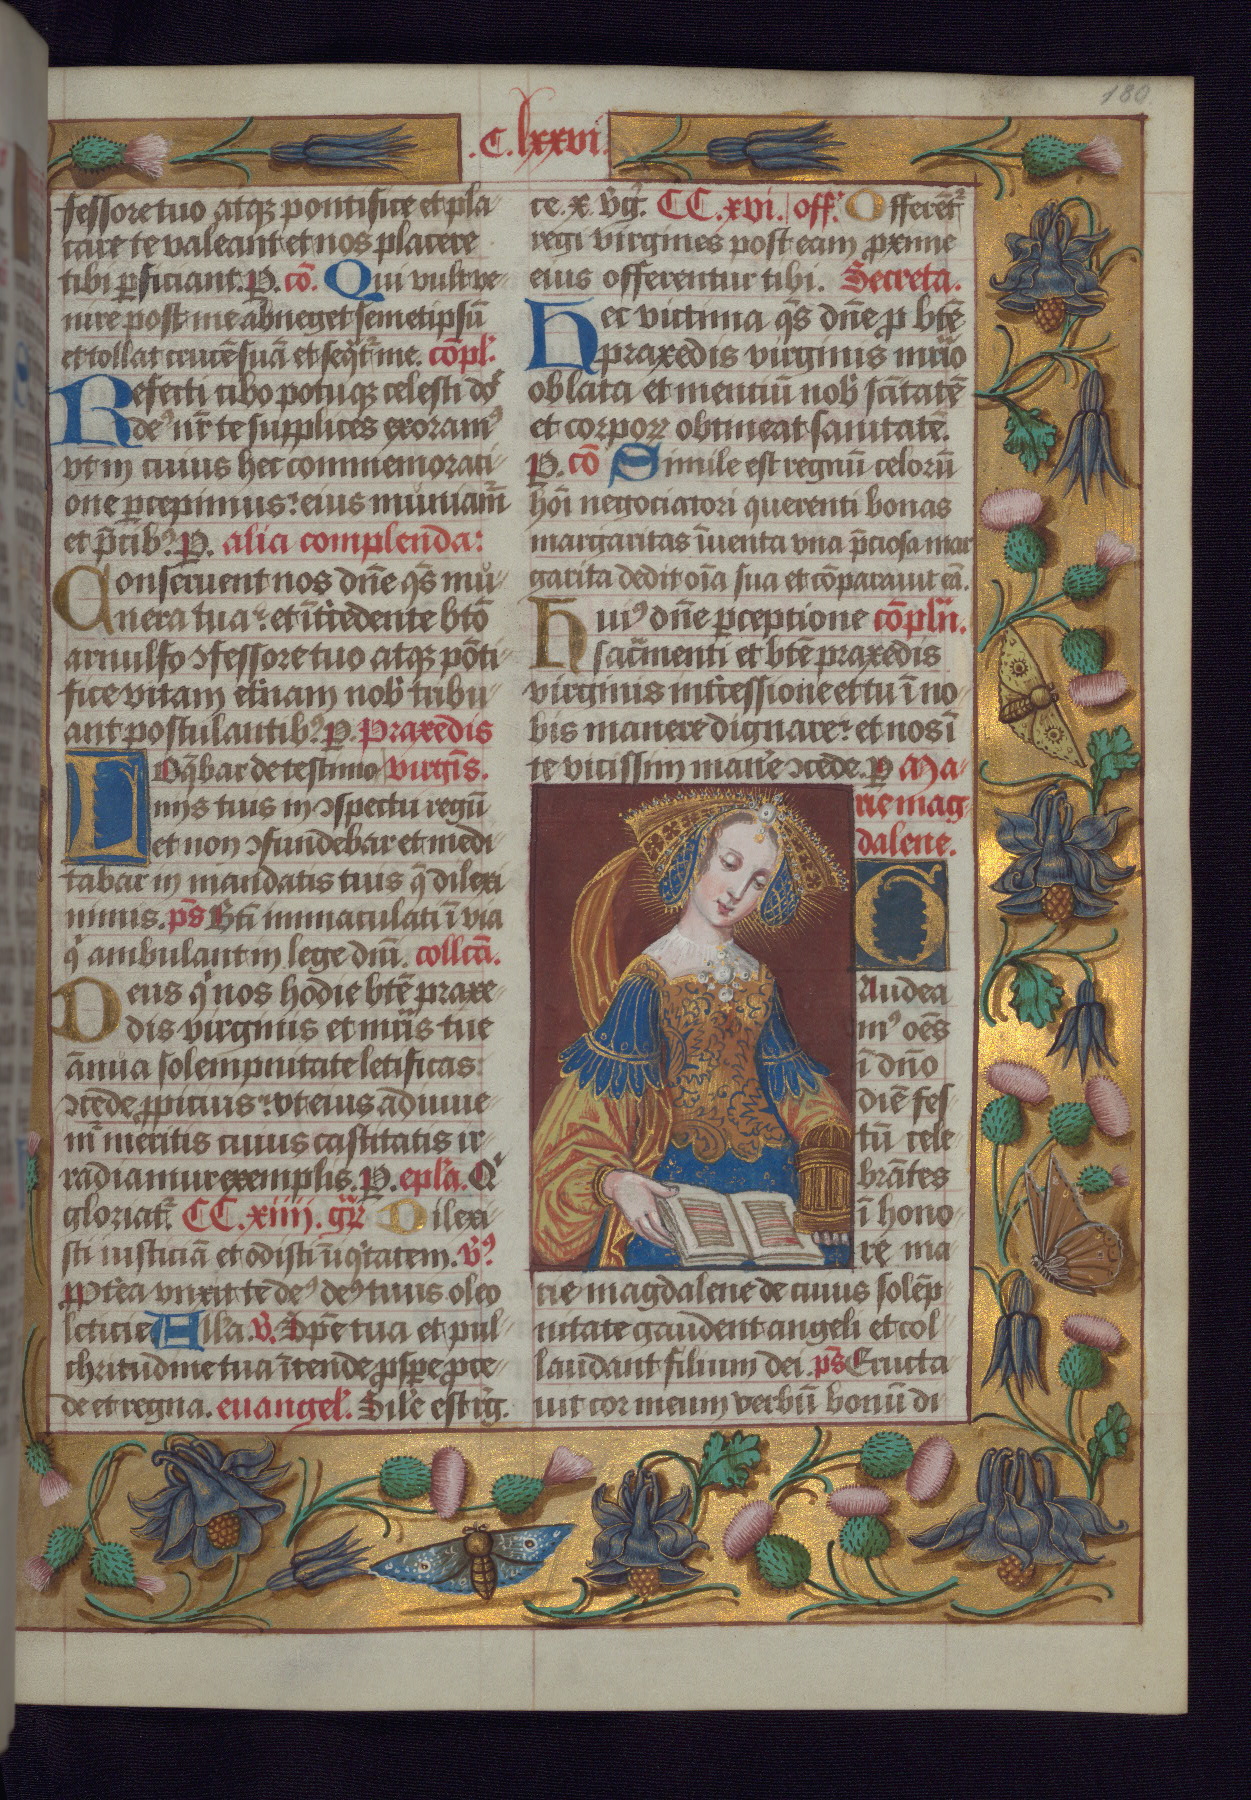 180
.C. lxxvi.
fessore tuo atqꝫ pontifice et pla-
care te valeant et nos placere
tibi ꝑficiant. P. cō. Qui vult ve-
nire post me abneget semetipsū
et tollat crucē suā et seq̄t̄ me. cōpl'.
Refecti cibo potuqꝫ celesti dꝰ
deꝰ nr̄ te supplices exoramꝰ
vt in cuius hec commemorati-
one ꝑcepimus: eius muniam̄
et p̄cibꝰ. P. alia complenda:
Conseruent nos dn̄e q̄s mu-
nera tua: et īt'cedente btō
arnulfo ꝯfessore tuo atqꝫ pōti-
fice vitam et'nam nob' tribu-
ant postulantibꝰ. P. Praxedis
Loq̄bar de testimo- virgīs.
nijs tuis in ꝯspectu regū
et non ꝯfundebar et medi-
tabar in mandatis tuis q̄ dilexi
nimis. pš Btī immaculati ī via
qⁱ ambulant in lege dn̄i. collcā.
Deus qⁱ nos hodie btē praxe-
dis virginis et mr̄is tue
ānua solempnitate letificas:
ꝯcede ꝓpicius: vt eius adiuue-
mr̄ meritis cuius castitatis ir-
radiamur exemplis. P. epl'a. Qⁱ
gloriat'. CC.xiiii. gr̄ Dilexi-
sti iusticiā et odisti īiq̄tatem. v̄ꝰ
Ppt'ea vnxit te deꝰ deꝰ tuus oleo
leticie Alla. v̄. Spē tua et pul-
chritudine tua ītende ꝓspe ꝓce-
de et regna. euangel'. Sil'e est rḡ.
ce. x. v̄g'. CC.xvi. off' Offerēt'
regi virgines post eam ꝓxime
eius offerentur tibi. Secreta.
Hec victima q̄s dn̄e ꝓ btē
praxedis virginis mr̄io
oblata et mentiū nob' sc̄itatē
et corpoꝝ obtineat sanitatē.
P. cō Simile est regnū celorū
hōi negociatori querenti bonas
margaritas īuenta vna p̄ciosa mar
garita dedit oīa sua et cōparauit eā.
Huiꝰ dn̄e ꝑceptione cōpln̄.
sac̄menti et btē praxedis
virginis int'cessione et tu ī no-
bis manere dignare: et nos ī
te vicissim man'e ꝯcede. P Ma-
rie mag-
dalene.
G
Audea
mꝰ oēs
ī dn̄o
diē fes-
tū cele-
brātes
ī hono-
re ma-
rie magdalene de cuius solēp-
nitate gaudent angeli et col-
laudant filium dei. pš Eructa-
uit cor meum verbū bonū di-